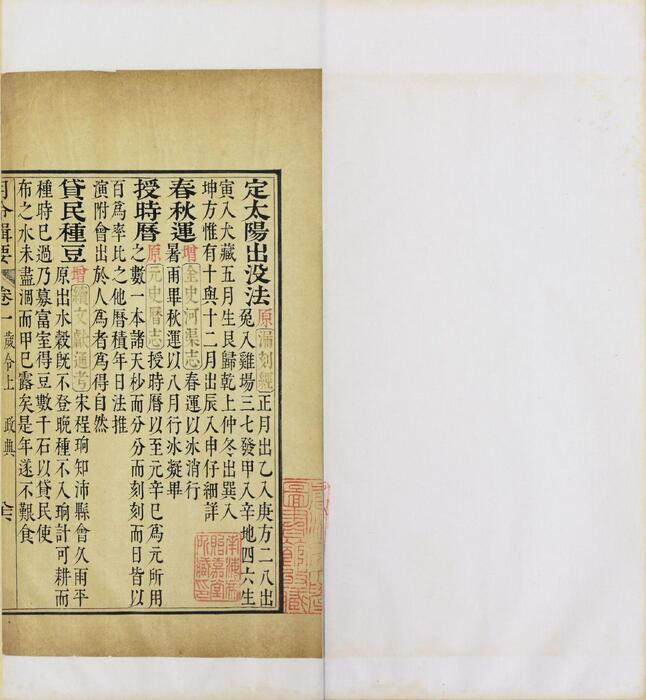 定太陽出没法 原 漏刻經 正月出乙入庚方二八出
兔入雞場三七發甲入辛地四六生
寅入犬藏五月生艮歸乾上仲冬出巽入
坤方惟有十與十二月出辰入申仔細詳
春秋運 增 金史河渠志 春運以冰消行
暑雨畢秋運以八月行冰凝畢
授時曆 原 元史曆志 授時曆以至元辛巳爲元所用
之數一本諸天秒而分分而刻刻而日皆以
百爲率比之他曆積年日法推
演附會出於人爲者爲得自然
貸民種豆 增 續文獻通考 宋程珦知沛縣會久雨平
原出水穀旣不登晚種不入珦計可耕而
種時已過乃募富室得豆數千石以貸民使
布之水未盡涸而甲已露矣是年遂不艱食
月令輯要 卷一 歲令上 政典